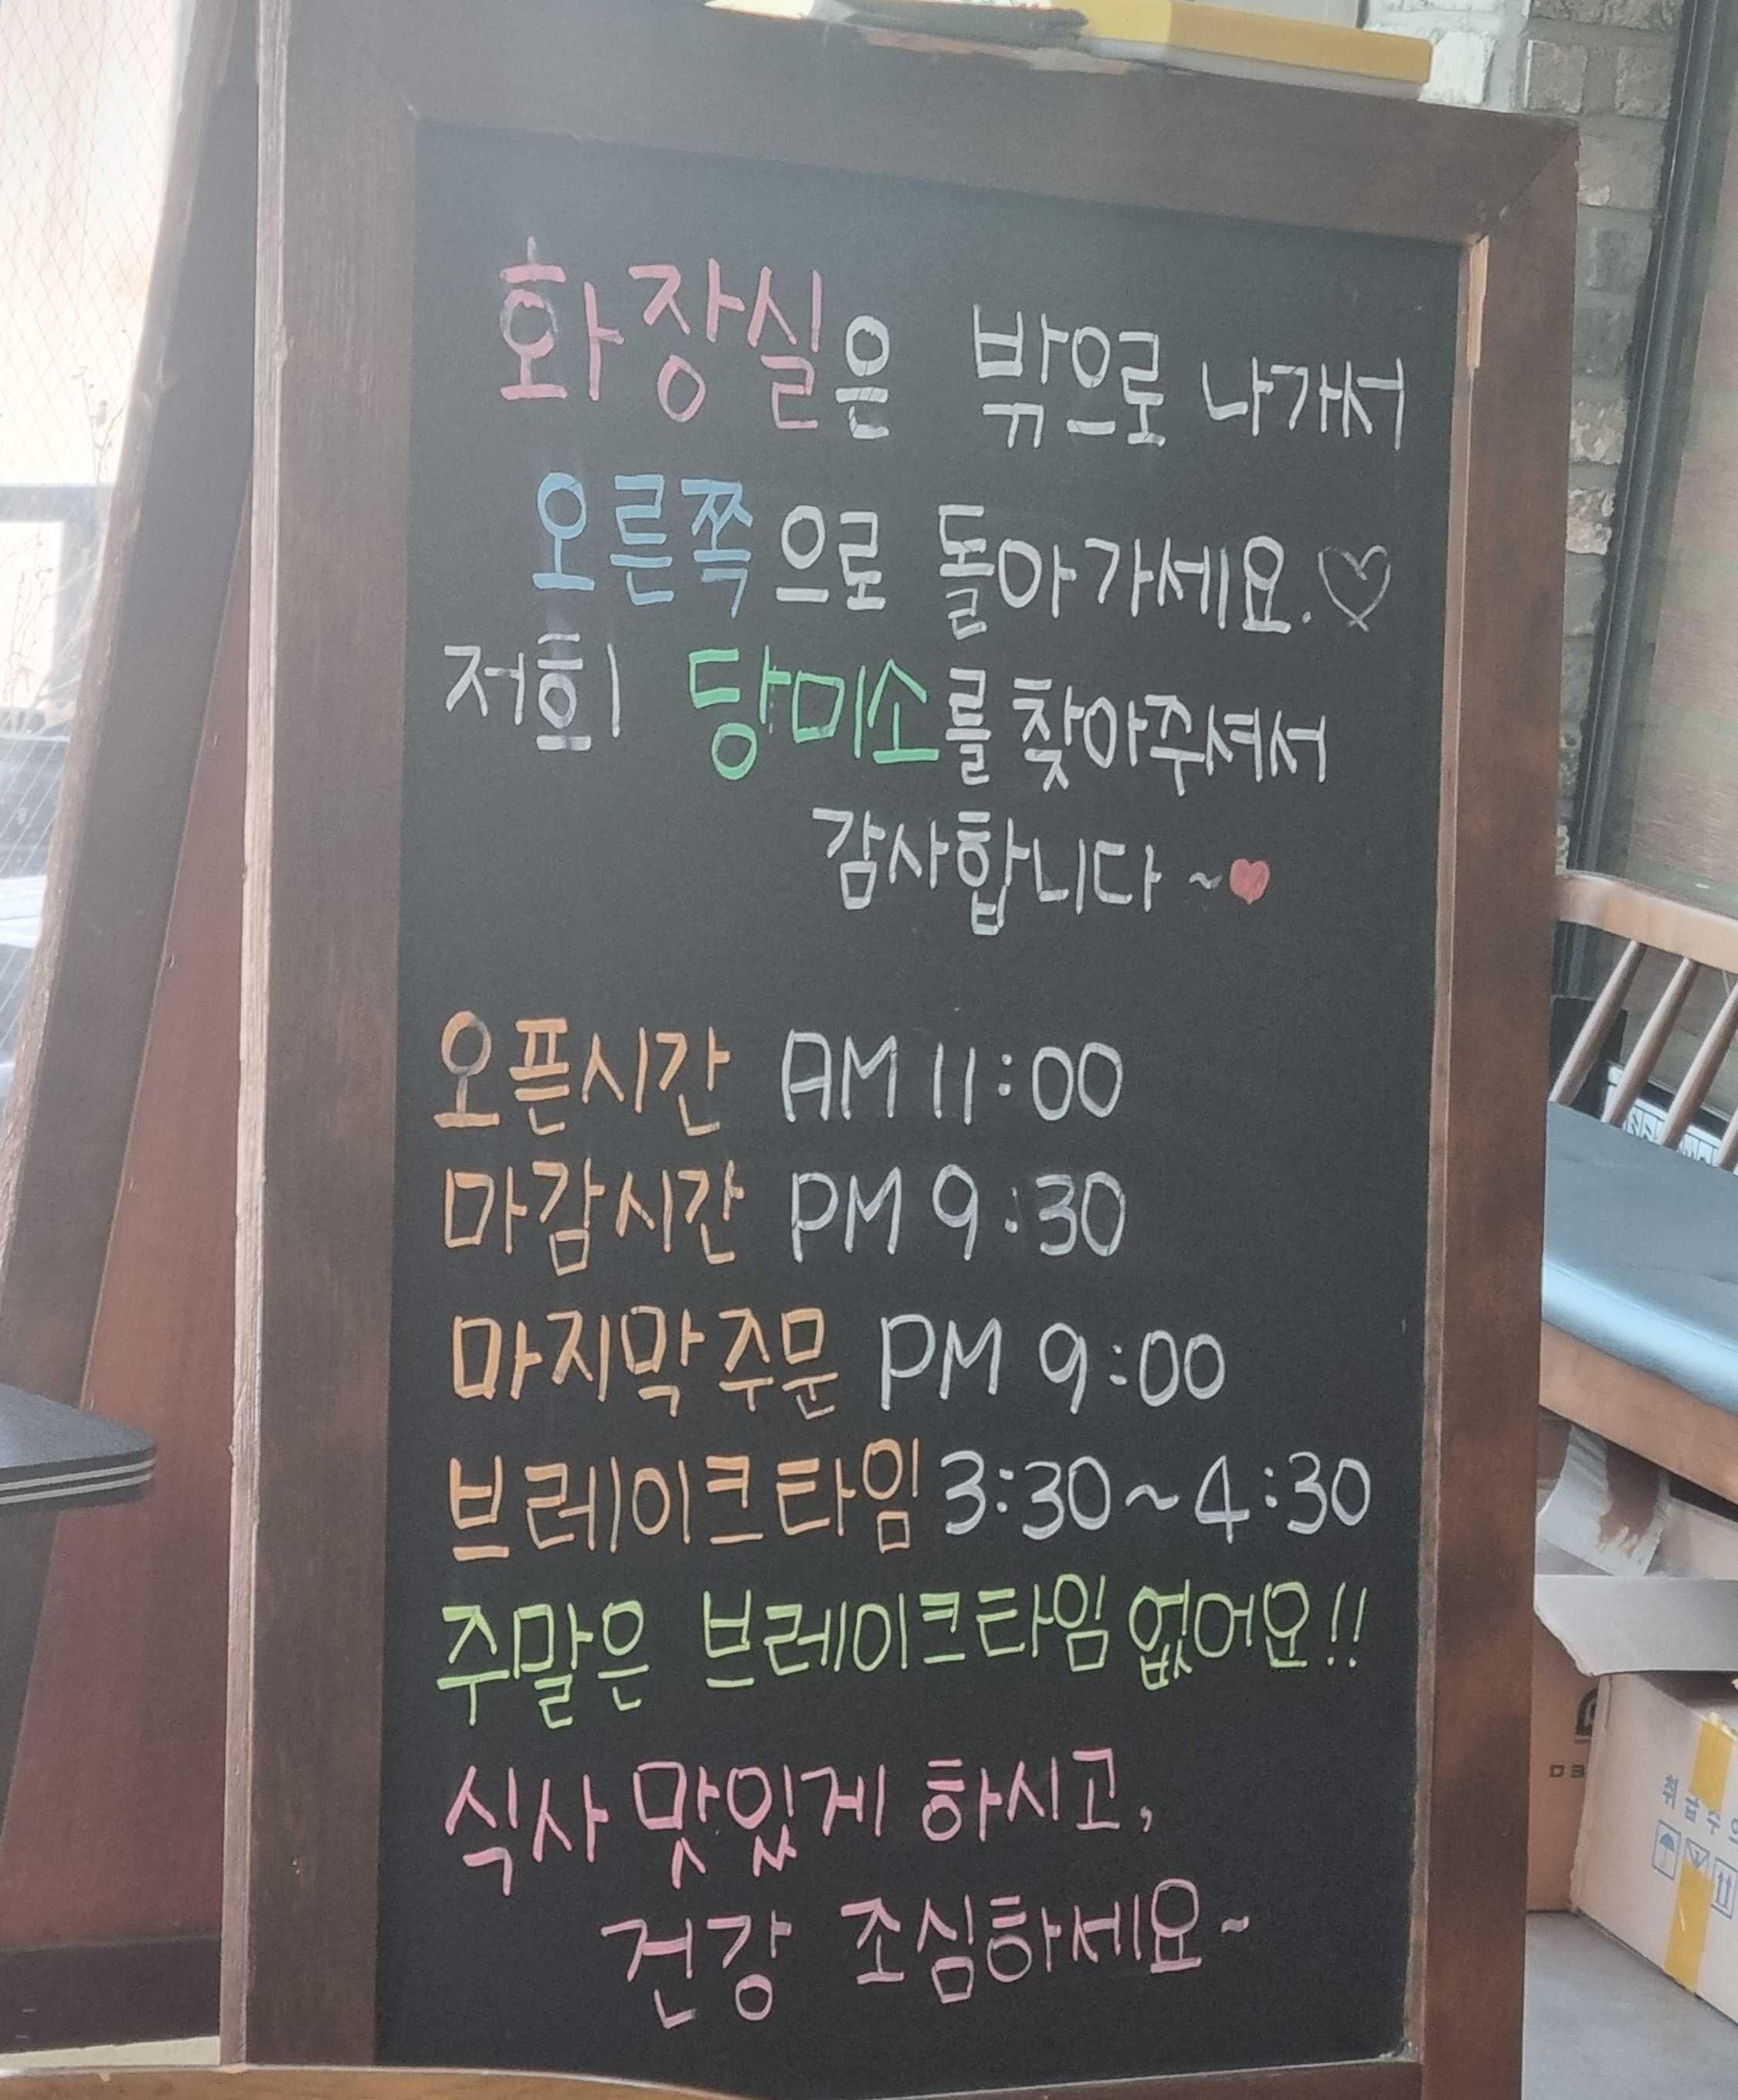 화장실은 밖으로 나가서
오른쪽으로 돌아가세요.♡
저희 당미소를 찾아주셔서
감사합니다 ~♥
오픈시간 AM 11:00
마감시간 PM 9:30
마지막주문 PM 9:00
브레이크타임 3:30~4:30
주말은 브레이크타임 없어요!!
식사 맛있게 하시고,
건강 조심하세요~
취급수